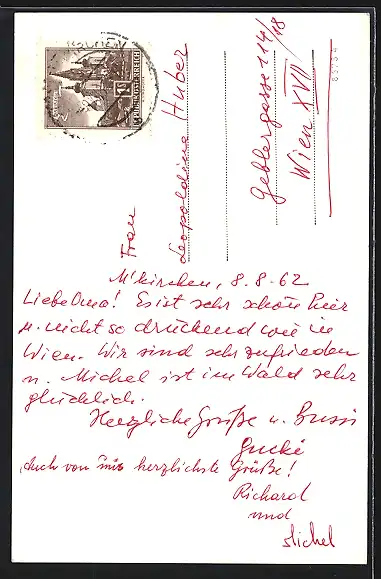 Frau
Leopoldine Huber
Geblergasse 114/18
Wien XVII
83754
REPUBLIK ÖSTERREICH
M'kirchen, 8.8.62
Liebe Oma! Es ist sehr schön hier
u. nicht so drückend wie in
Wien. Wir sind sehr zufrieden
u. Michel ist im Wald sehr
glücklich.
Herzliche Grüße u. Bussi
Gucki
Auch von mir herzlichste Grüße!
Richard
und
Michel